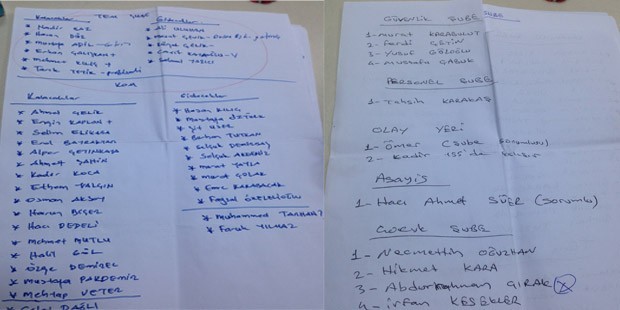 Kalacaklar TEM ŞUBE Gidecekler
* Kadir KOZ
* Hasan
* Mustafa ADİL
* Erhan ÇALIŞKAN +
* Mehmet KILIÇ +
* Tarık
* Ali
* Murat ÇELİK
* ÇELİK
* Sabri YAZICI
KOM
Kalacaklar
* Ahmet ÇELİK
* Engin KAPLAN +
* Selim ELİKARA
* Erol BAYRAKTAR
* Alper ÇETİNKAYA
* Ahmet ŞAHİN
* Kadir KOCA
* Ethem YALÇIN
* Osman AKSOY
* Harun BEŞER
* Hacı DEDELİ
* Mehmet MUTLU
* Halil GÜL
* Özge DEMİREL
* Mustafa PARDEMİR
* Mehtap YETER
DAĞLI
Gidecekler
* Hasan KILIÇ
* Mustafa ÖZTÜRK
* Yiğit
* Burhan TUTKAN
* Selçuk DEMİRBAŞ
* Selçuk AKDENİZ
* Murat YAYLA
* Murat ÇOLAK
* Emre KARABACAK
* Faysal
* Muhammet
* Faruk YILMAZ
ŞUBE
Güvenlik ŞUBE
1- Murat KARABULUT
2- Ferdi ÇETİN
3- Yusuf GÖZLOĞLU
4- Mustafa ÇABUK
PERSONEL ŞUBE
1- Tahsin KARAKAŞ
OLAY YERİ
1- Ömer (Şube Sorumlusu)
2- Kadir 155'de
Asayiş
1- Hacı Ahmet SÜER (Sorumlu)
Çocuk ŞUBE
1- Necmettin OĞUZHAN
2- Hikmet KARA
3- Abdurrahman GIRAK X
4- İrfan KESEKLER